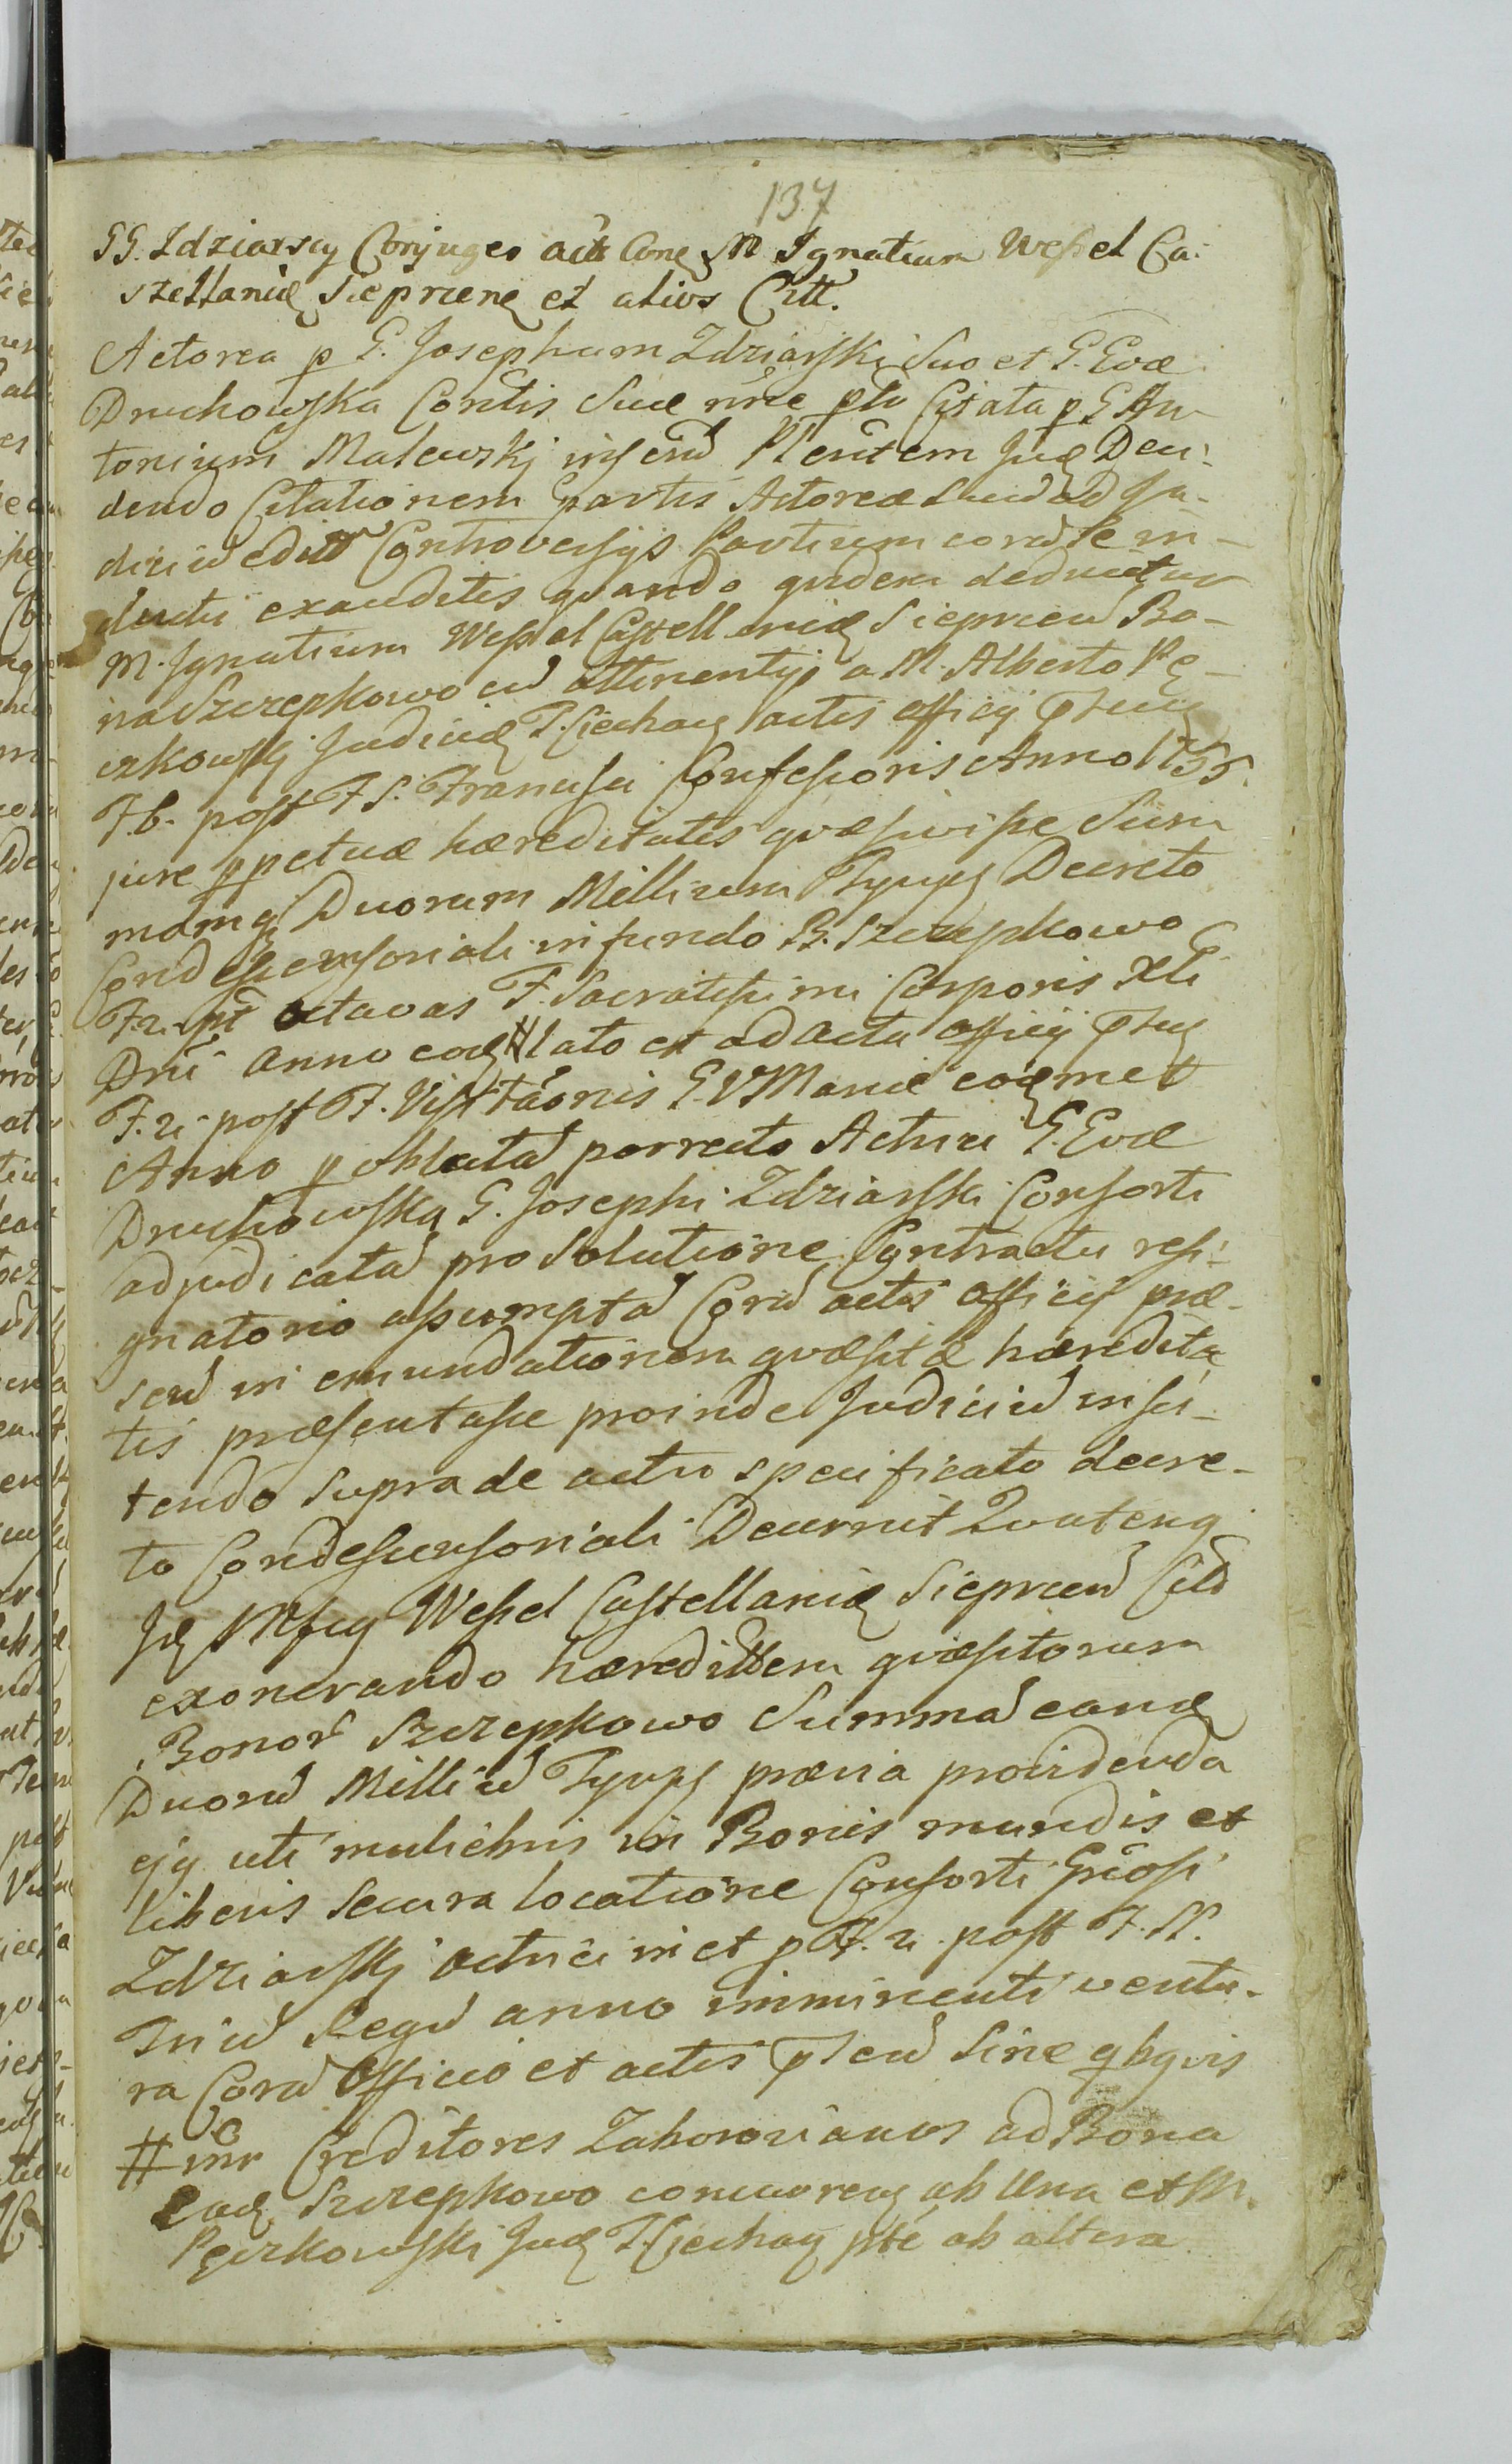 137
GG. Zdziarscy Conjuges act Conq M Ignatium Wessel Ca-
sztellanidę Sieprcenę et alios Citt.
Actorea p G. Josephum Zdziarski Suo et G. Evæ
Druchowska Contis Suæ nñe pto Citata p G An-
tonium Malewskj insend Plentem Judę Deci-
dendo Citationem partis Actoreæ Laud ad Ju-
diciu edit Controversijs Partium corad se in-
ductis exauditis quando quidem deducitur
M. Ignatium Wessel Castellanidę Sieprcen Bo-
na Szczepkowo cu attinentijs a M. Alberto Pę-
czkowskj Judicidę T. Ciechaę actis officij pntiu
F. 6. post F S. Francisci Confessoris Anno 1755.
jure ppetuæ hæreditatis quæsivisse Sum
mamq Duorum Millium Tynf Decreto
Condescensoriali in fundo B. Szczepkowo
F. 2. pt octavas F. Sacratissimi Corporis Xti
Dni anno eodę # lato et ad acta officij ptiu
F. 2. post F. Visitãonis B V Mariæ eodęmet
Anno p oblata porrecto Actrici G. Evæ
Druchowska G. Josephi Zdziarski Consorti
adjudicata pro solutione Contractu resi-
gnatorio assumpta Cord actis officij præ-
sen in emundationem quæsitæ hæredita
tis præsentasse proinde Judiciu insi-
tendo supra de actu specificato decre-
to Condescensoriali Decernit Quatenq
Jd Mfcq Wessel Castellanidę Sieprcen Citd
exonerando hæreditem quæsitorum
Bonor Szczepkowo Summa eandę
Duord Milliu Tynf prævia providenda
ejq uti muliebris in Bonis mundis et
liberis secura locatione Consorti Gñosi
Zdziarskj actrici in et p F. 2. post F. SS.
Triu Regu anno imminenti ventu-
ra Cord Officio et actis ptiu sine qbqvis
# inr Creditores Zaborovianos ad Bona
Eadę Szczepkowo concurreñ ab una et M.
Pęczkowski Judę T. Ciechaę pte ab altera